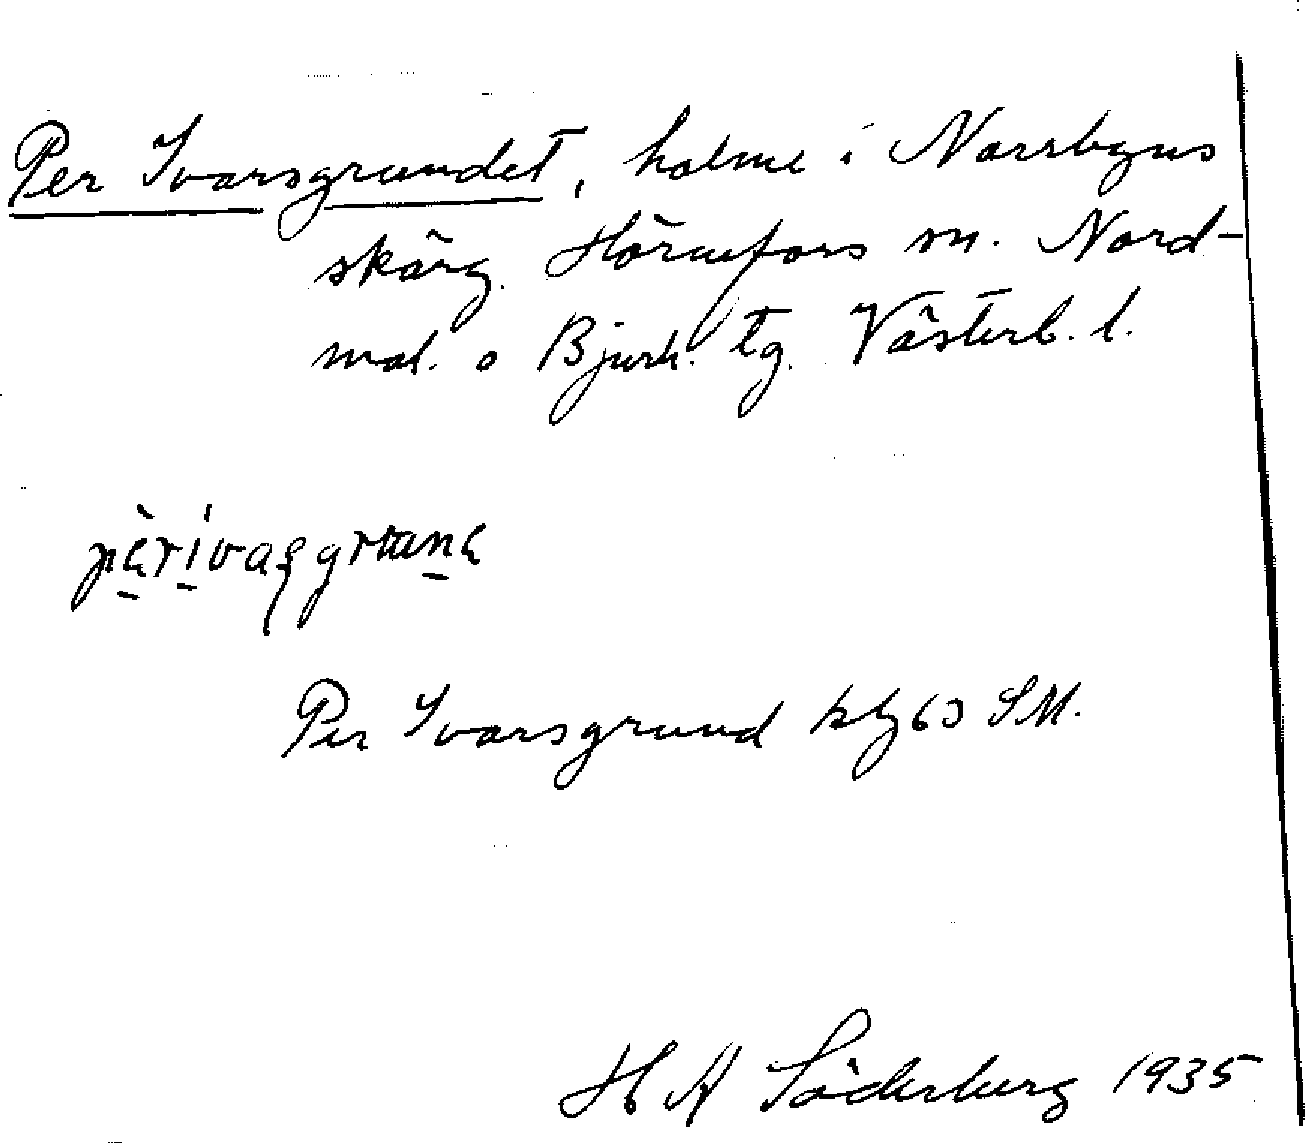 Per Ivarsgrundet, holme i Norrbyns
skärg. Hörnefors sn. Nord-
mal. o Bjurh. tg. Västerb. l.
Per Ivarsgrund kbl 63 SM.
H A Söderberg 1935